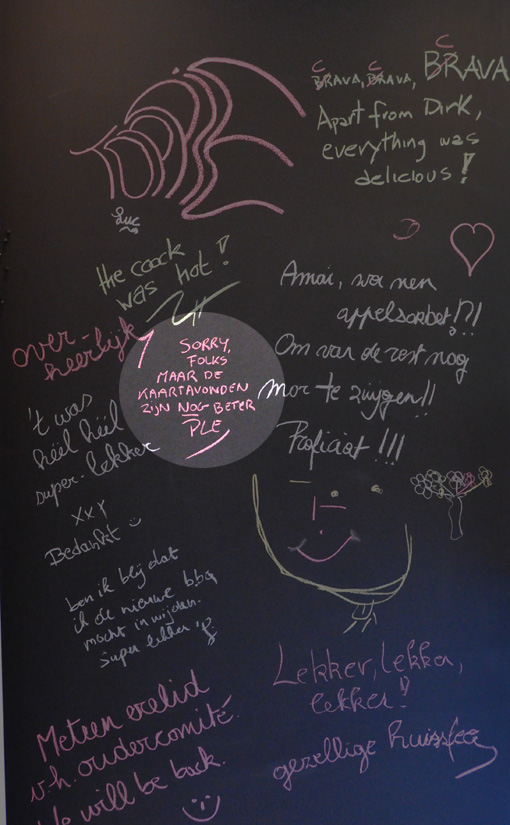 BRAVA, BRAVA, BRAVA
C C C
Apart from Dirk,
everything was
delicious!
Luc
the coock
was hot!
over-
heerlijk
SORRY,
FOLKS
MAAR DE
KAARTAVONDEN
ZIJN NOG BETER
PLE
Amai, wa nen
appelsorbet!?!
Om van de rest nog
mor te zwijgen!!
Proficiat!!!
't was
héél héél
super-lekker
xxx
Bedankt
ben ik blij dat
ik de nieuwe bbq
mocht inwijden.
Super lekker
Meteen erelid
v.h. oudercomité.
We will be back.
Lekker, lekker,
lekker!
gezellige